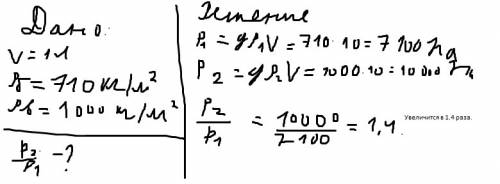 Дано:
V = 1 л
ρб = 710 кг/м²
ρв = 1000 кг/м²
p₂/p₁ - ?
Решение
P₁ = gρ₁V = 710 · 10 = 7100 Н
P₂ = gρ₂V = 1000 · 10 = 10000
P₂/P₁ = 10000/7100 = 1,4
Увеличится в 1.4 раза.